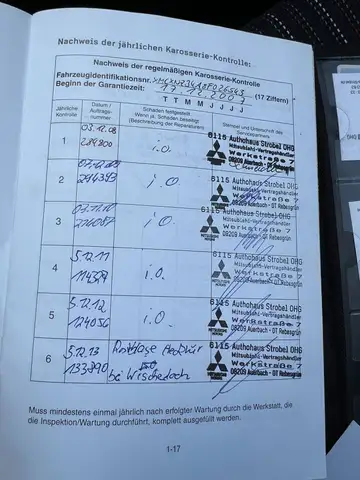 Nachweis der jährlichen Karosserie-Kontrolle:
Nachweis der regelmäßigen Karosserie-Kontrolle
Fahrzeugidentifikationsnr. (17 Ziffern)
Beginn der Garantiezeit:
T T M M J J J J
Jährliche Kontrolle
Datum / Auftragsnummer
Schaden festgestellt
Wenn ja, Schaden beseitigt
(Beschreibung der Reparaturen)
Stempel und Unterschrift des Servicepartners
1
03.12.08
i.O.
6115 Authohaus Strobel OHG
Mitsubishi-Vertragshändler
Werkstraße 7
08209 Auerbach - OT Rebesgrün
2
i.O.
6115 Authohaus Strobel OHG
Mitsubishi-Vertragshändler
Werkstraße 7
08209 Auerbach - OT Rebesgrün
3
i.O.
6115 Authohaus Strobel OHG
Mitsubishi-Vertragshändler
Werkstraße 7
08209 Auerbach - OT Rebesgrün
4
5.12.11
114329
i.O.
6115 Authohaus Strobel OHG
Mitsubishi-Vertragshändler
Werkstraße 7
08209 Auerbach - OT Rebesgrün
5
5.12.12
124056
i.O.
6115 Authohaus Strobel OHG
Mitsubishi-Vertragshändler
Werkstraße 7
08209 Auerbach - OT Rebesgrün
6
5.12.13
133990
bei
6115 Authohaus Strobel OHG
Mitsubishi-Vertragshändler
Werkstraße 7
08209 Auerbach - OT Rebesgrün
Muss mindestens einmal jährlich nach erfolgter Wartung durch die Werkstatt, die
die Inspektion/Wartung durchführt, komplett ausgefüllt werden.
1-17